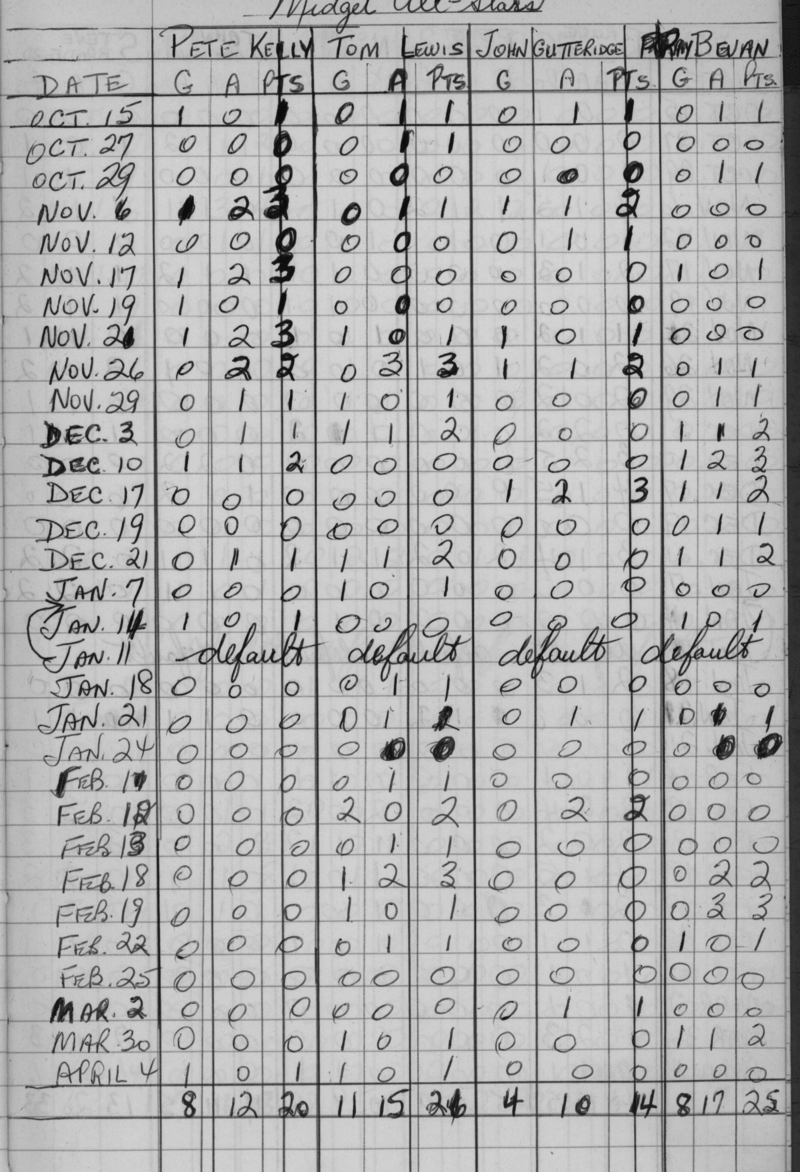 Midget All-Stars
PETE KELLY TOM LEWIS JOHN GUTTERIDGE RAY BEVAN
DATE G A PTS G A PTS. G A PTS. G A PTS.
OCT. 15 1 0 1 0 1 1 0 1 1 0 1 1
OCT. 27 0 0 0 0 1 1 0 0 0 0 0 0
OCT. 29 0 0 0 0 0 0 0 0 0 0 1 1
NOV. 6 1 2 3 0 1 1 1 1 2 0 0 0
NOV. 12 0 0 0 0 0 0 0 1 1 0 0 0
NOV. 17 1 2 3 0 0 0 0 0 0 1 0 1
NOV. 19 1 0 1 0 0 0 0 0 0 0 0 0
NOV. 21 1 2 3 1 0 1 1 0 1 0 0 0
NOV. 26 0 2 2 0 3 3 1 1 2 0 1 1
NOV. 29 0 1 1 1 0 1 0 0 0 0 1 1
DEC. 3 0 1 1 1 1 2 0 0 0 1 1 2
DEC. 10 1 1 2 0 0 0 0 0 0 1 2 3
DEC. 17 0 0 0 0 0 0 1 2 3 1 1 2
DEC. 19 0 0 0 0 0 0 0 0 0 0 1 1
DEC. 21 0 1 1 1 1 2 0 0 0 1 1 2
JAN. 7 0 0 0 1 0 1 0 0 0 0 0 0
JAN. 14 1 0 1 0 0 0 0 0 0 1 0 1
JAN. 11 default default default default
JAN. 18 0 0 0 0 1 1 0 0 0 0 0 0
JAN. 21 0 0 0 0 1 1 0 1 1 0 1 1
JAN. 24 0 0 0 0 0 0 0 0 0 0 0 0
FEB. 1 0 0 0 0 1 1 0 0 0 0 0 0
FEB. 12 0 0 0 2 0 2 0 2 2 0 0 0
FEB 13 0 0 0 0 1 1 0 0 0 0 0 0
FEB. 18 0 0 0 1 2 3 0 0 0 0 2 2
FEB. 19 0 0 0 1 0 1 0 0 0 0 3 3
FEB. 22 0 0 0 0 1 1 0 0 0 1 0 1
FEB. 25 0 0 0 0 0 0 0 0 0 0 0 0
MAR. 2 0 0 0 0 0 0 0 1 1 0 0 0
MAR. 30 0 0 0 1 0 1 0 0 0 1 1 2
APRIL 4 1 0 1 1 0 1 0 0 0 0 0 0
8 12 20 11 15 26 4 10 14 8 17 25